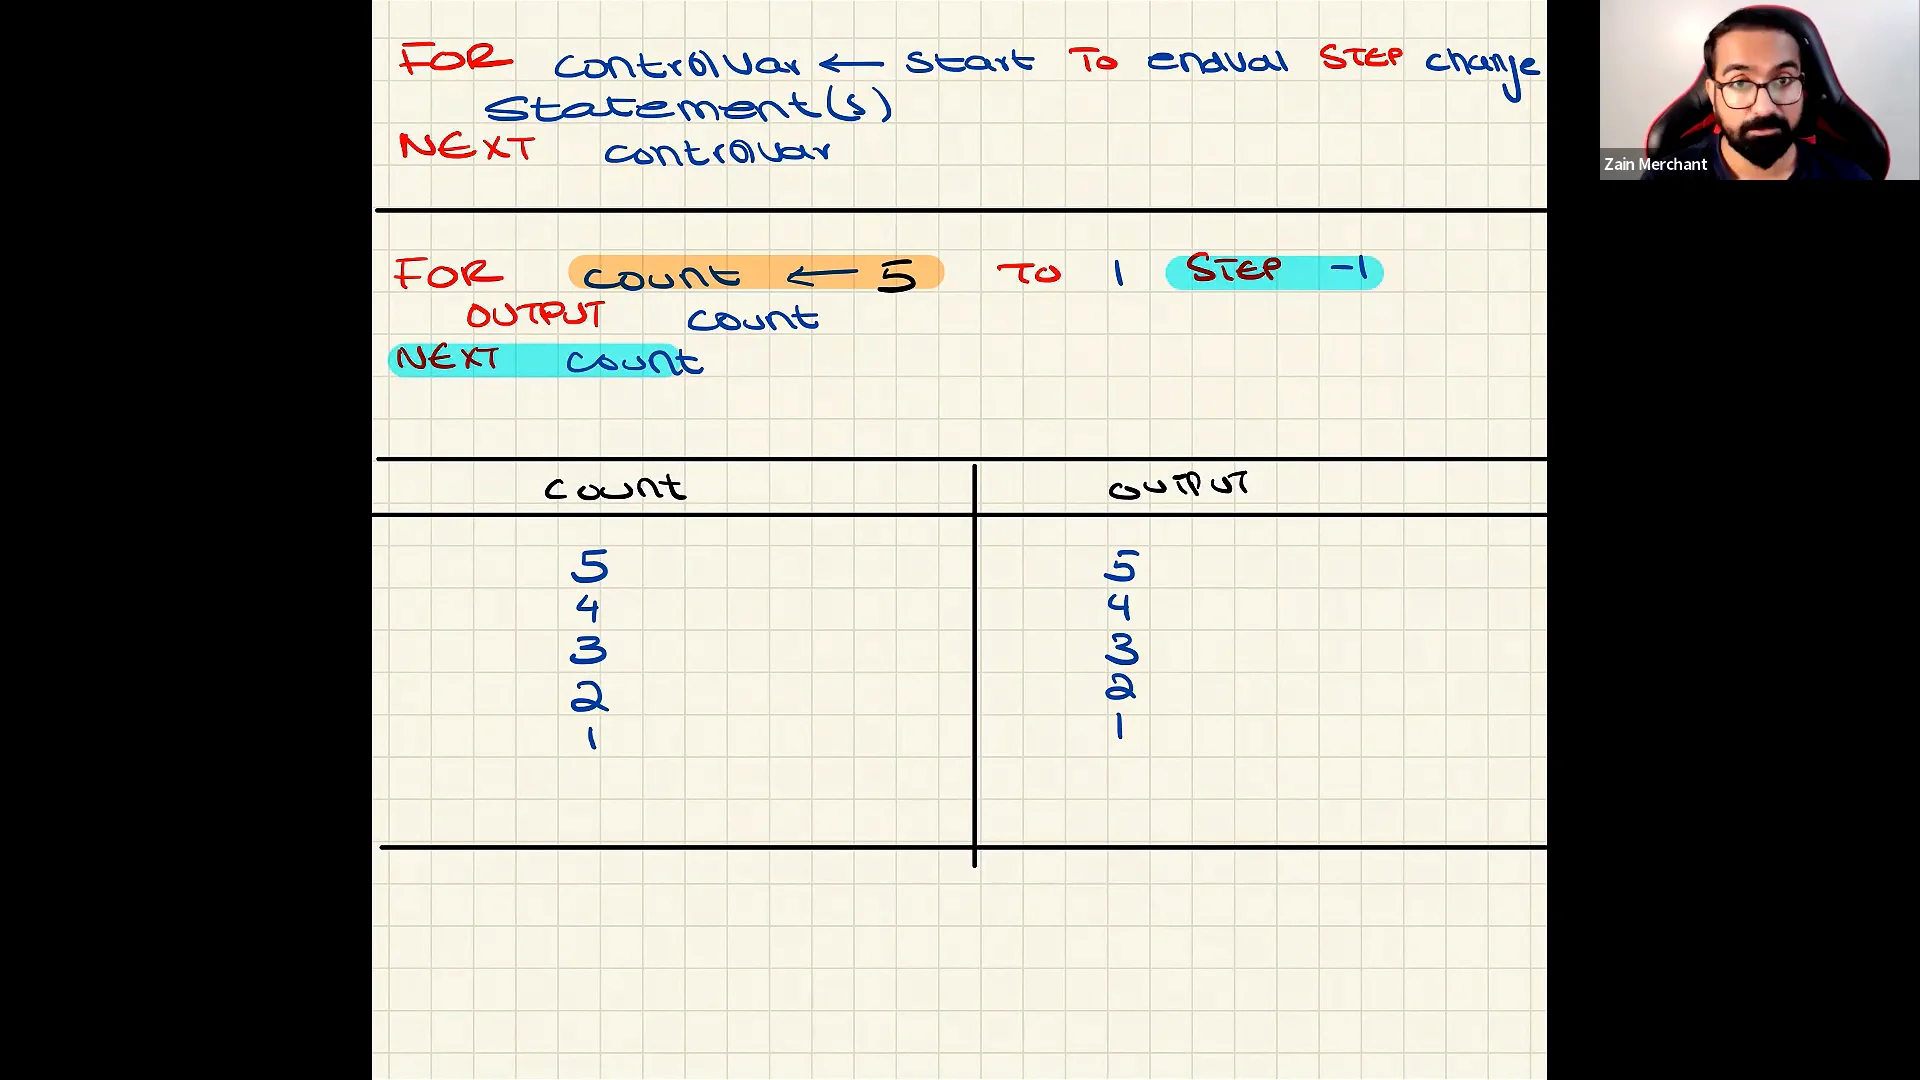 FOR controlVar ← start TO endval STEP change
Statement(s)
NEXT controlvar
FOR count ← 5 TO 1 STEP -1
OUTPUT count
NEXT count
count OUTPUT
5 5
4 4
3 3
2 2
1 1
Zain Merchant